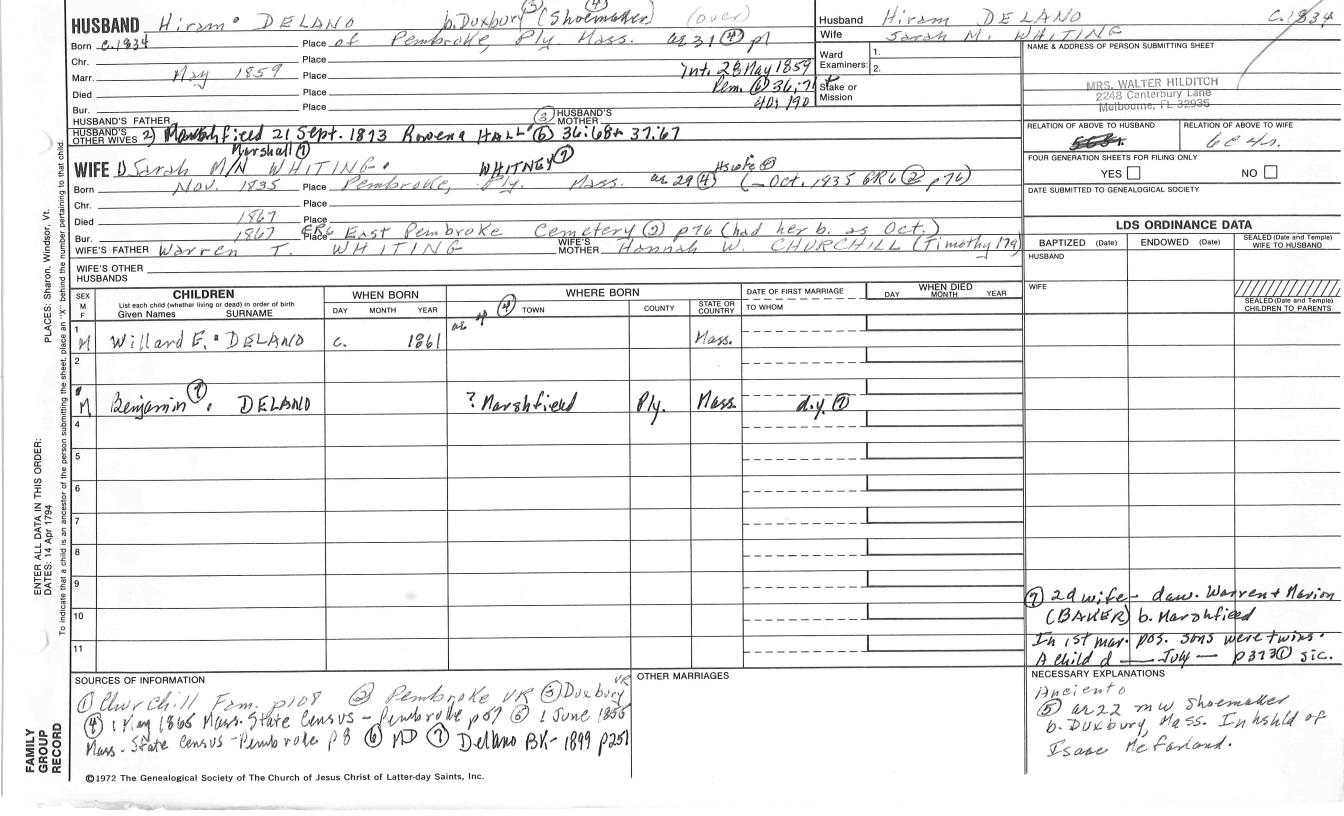 HUSBAND Hiram DELANO b. Duxbury (3) (Shoemaker) (4) (over)
Born c.1834 Place of Pembroke, Ply Mass. ae 31 (4) p1
Chr. Place
Marr. May 1859 Place Int. 28 May 1859
Died Place Pem. (6) 36:71
Bur. Place 40:190
HUSBAND'S FATHER (3) HUSBAND'S MOTHER
HUSBAND'S OTHER WIVES 2) Marshfield 21 Sept. 1873 Rowena HALL (6) 36:68+ 37:67
Marshall (7)
WIFE 1) Sarah M/N WHITING. WHITNEY (7)
Born Nov. 1835 Place Pembroke, Ply. Mass. ae 29 (4) (— Oct. 1835 GR6 (2) p76)
Chr. Place
Died 1867 Place
Bur. 1867 Place GR6 East Pembroke Cemetery (2) p76 (had her b. as Oct.)
WIFE'S FATHER Warren T. WHITING WIFE'S MOTHER Hannah W. CHURCHILL (Timothy 179)
WIFE'S OTHER HUSBANDS
Husband Hiram DELANO c.1834
Wife Sarah M. WHITING
Ward Examiners: 1.
2.
Stake or Mission
NAME & ADDRESS OF PERSON SUBMITTING SHEET
MRS. WALTER HILDITCH
2248 Canterbury Lane
Melbourne, FL 32935
RELATION OF ABOVE TO HUSBAND
RELATION OF ABOVE TO WIFE
6c4r.
FOUR GENERATION SHEETS FOR FILING ONLY
YES NO
DATE SUBMITTED TO GENEALOGICAL SOCIETY
LDS ORDINANCE DATA
BAPTIZED (Date) ENDOWED (Date) SEALED (Date and Temple) WIFE TO HUSBAND
HUSBAND
WIFE
SEALED (Date and Temple) CHILDREN TO PARENTS
SEX M F
CHILDREN
List each child (whether living or dead) in order of birth
Given Names SURNAME
WHEN BORN
DAY MONTH YEAR
WHERE BORN
TOWN COUNTY STATE OR COUNTRY
DATE OF FIRST MARRIAGE
TO WHOM
WHEN DIED
DAY MONTH YEAR
as of (4)
1 M Willard E. DELANO c. 1861 Mass.
2
M Benjamin (7) DELANO ? Marshfield Ply. Mass. d.y. (7)
4
5
6
7
8
9
10
11
(7) 2d wife- dau. Warren + Marion
(BAKER) b. Marshfield
In 1st mar. pos. sons were twins.
A child d — July — p373 (1) sic.
SOURCES OF INFORMATION
(1) Churchill Fam. p108 (2) Pembroke VR (3) Duxbury VR
(4) 1 May 1865 Mass. State Census - Pembroke p57 (5) 1 June 1855
Mass. State Census - Pembroke p8 (6) MD (7) Delano BK- 1899 p251
OTHER MARRIAGES
NECESSARY EXPLANATIONS
(5) ae 22 m w Shoemaker
b. Duxbury, Mass. In hshld of
Isaac McFarland.
©1972 The Genealogical Society of The Church of Jesus Christ of Latter-day Saints, Inc.
FAMILY GROUP RECORD
ENTER ALL DATA IN THIS ORDER:
DATES: 14 Apr 1794
PLACES: Sharon, Windsor, Vt.
To indicate that a child is an ancestor of the person submitting the sheet, place an "X" behind the number pertaining to that child.